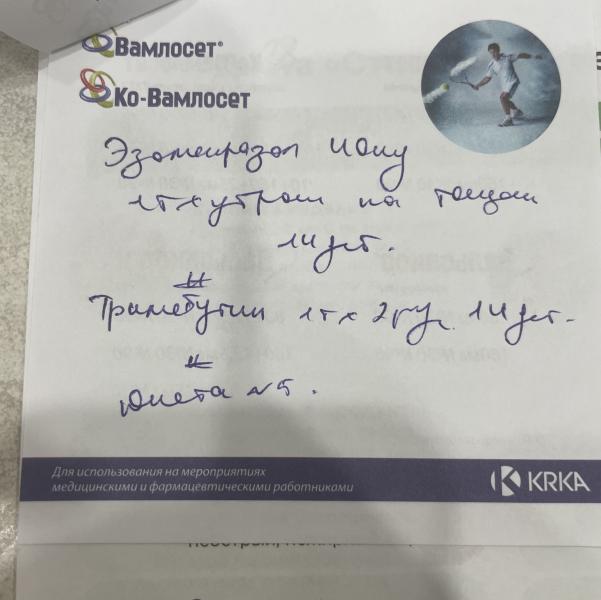 Вамлосет®
Ко-Вамлосет
Эзомепразол 40мг
1т х утром на тощак
14 дн.
#
Тримебутин 1т х 2 р/д 14 дн.
#
Диета №5.
Для использования на мероприятиях
медицинскими и фармацевтическими работниками
KRKA